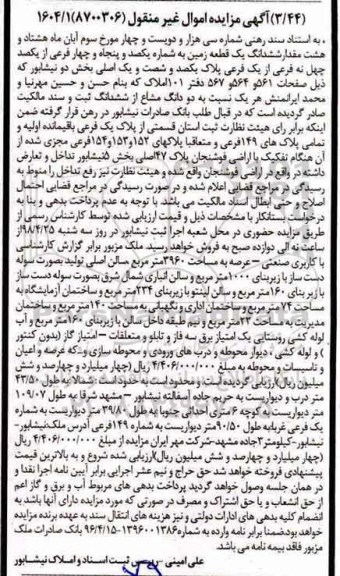 (۳/۴۴) آگهی مزایده اموال غیر منقول (۸۷۰۰۳۰۶) ۱۶۰۴/۱
، به استناد سند رهنی شماره سی هزار و دویست و چهار مورخ سوم آبان ماه هشتاد و
هشت مقدار ششدانگ یک قطعه زمین به شماره یکصد و پنجاه و چهار فرعی از یکصد
چهل نه فرعی از یک فرعی پلاک یکصد و شصت و یک اصلی بخش دو نیشابور که
ذیل صفحات ۵۶۱ و ۵۶۴ و ۵۶۷ دفتر ۱۰۱ املاک که بنام حسن و حسین مهرنیا و
محمد ایرانمنش هر یک نسبت به دو دانگ مشاع از ششدانگ ثبت و سند مالکیت
صادر گردیده است که در قبال طلب بانک صادرات نیشابور در رهن قرار گرفته ضمن
اینکه برابر رای هیئت نظارت ثبت استان قسمتی از پلاک یک فرعی باقیمانده اولیه و
تمامی پلاک های ۱۴۹ فرعی و متعاقبا پلاکهای ۱۵۲ و ۱۵۳ و ۱۵۴ فرعی مجزی شده از
آن هنگام تفکیک با اراضی فوشنجان پلاک ۴۷ اصلی بخش ۵ نیشابور تداخل و تعارض
داشته در واقع در اراضی فوشنجان واقع شده و هیئت نظارت نیز رفع تداخل را منوط به
رسیدگی در مراجع قضایی اعلام شده و در صورت رسیدگی در مراجع قضایی احتمال
اصلاح و حتی ابطال اسناد مالکیت می باشد. با توجه به عدم پرداخت بدهی و بنا به
درخواست بستانکار با مشخصات ذیل و قیمت ارزیابی شده توسط کارشناس رسمی از
طریق مزایده حضوری در محل شعبه اجرا ثبت نیشابور در روز سه شنبه ۹۸/۴/۲۵ از
ساعت نه الی دوازده صبح به فروش خواهد رسید. ملک مزبور برابر گزارش کارشناسی
با کاربری صنعتی – عرصه به مساحت ۳۹۶۰ متر مربع سالن اصلی تولید بصورت سوله
دست ساز با زیربنای ۱۰۰۰ متر مربع و سالن انباری شمال شرق بصورت سوله دست ساز
با زیر بنای ۱۶۰ متر مربع و سالن لینتو با زیربنای ۲۳۴ متر مربع و ساختمان آزمایشگاه به
مساحت ۲۴ متر مربع و ساختمان اداری و نگهبانی به مساحت ۱۴۰ متر مربع و ساختمان
مدیریت به مساحت ۲۳ متر مربع و نیم طبقه داخل سالن با زیربنای ۱۶۰ متر مربع و آب
لوله کشی روستایی یک امتیاز برق سه فاز و تابلو و متعلقات – امتیاز گاز (بدون کنتور
) و لوله کشی ، دیوار محوطه و درب های ورودی و محوطه سازی و... که عرصه و اعیان
و تاسیسات و محوطه به مبلغ ۴/۴۰۶/۰۰۰/۰۰۰ ریال (چهار میلیارد و چهارصد و شش
میلیون ریال) ارزیابی گردیده است و محدود است به حدود است شمالا به طول ۴۳/۵۰
متر درب و دیواریست به حریم جاده آسفالته نیشابور – مشهد شرقا به طول ۱۰۹/۰۷
متر دیواریست به کوچه ۶ متری احداثی جنوبا به طول ۳۹/۸۰ متر دیواریست به شماره
یک فرعی غربا به طول ۹۰/۵۰ متر دیواریست به شماره ۱۴۹ فرعی آدرس ملک نیشابور–
نیشابور–کیلومتر ۳ جاده مشهد–شرکت مهر ایران مزایده از مبلغ ۴/۴۰۶/۰۰۰/۰۰۰ ریال
(چهار میلیارد و چهارصد و شش میلیون ریال) ارزیابی شده شروع و به بالاترین قیمت
پیشنهادی فروخته خواهد شد حق حراج و نیم عشر اجرایی برابر آیین نامه اجرا نقدا و
در همان جلسه وصول خواهد گردید پرداخت بدهی های مربوط آب و برق و گاز اعم
از حق انشعاب و یا حق اشتراک و مصرف در صورتی که مورد مزایده دارای آنها باشد به
انضمام کلیه بدهی های ادارات دولتی و نیز هزینه های انتقال سند به عهده برنده مزایده
خواهد بود. ضمنا برابر نامه وارده به شماره ۱۳۹۶۰۰۱۳۸۶–۹۶/۴/۱۵ بانک صادرات ملک
مزبور فاقد بیمه نامه می باشد.
علی امینی – رییس ثبت اسناد و املاک نیشابور